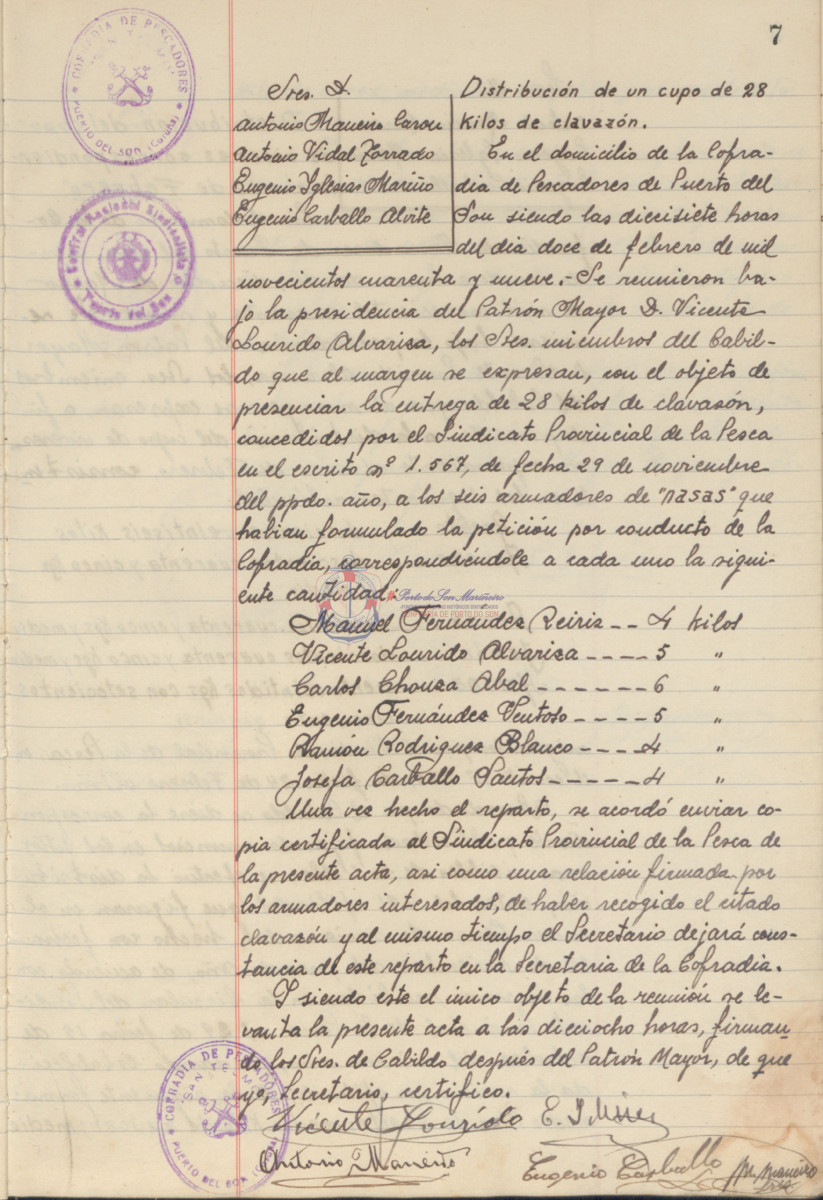 7
COFRADIA DE PESCADORES
SAN TELMO
PUERTO DEL SON (Coruña)
Central Nacional Sindicalista
Puerto del Son
Sres. D.
Antonio Maneiro Carou
Antonio Vidal Torrado
Eugenio Iglesias Mariño
Eugenio Carballo Alvite
Distribución de un cupo de 28
kilos de clavazón.
En el domicilio de la Cofra-
dia de Pescadores de Puerto del
Son siendo las diecisiete horas
del dia doce de febrero de mil
novecientos cuarenta y nueve.- Se reunieron ba-
jo la presidencia del Patrón Mayor D. Vicente
Lourido Alvariza, los Sres. miembros del Cabil-
do que al margen se expresan, con el objeto de
presenciar la entrega de 28 kilos de clavazón,
concedidos por el Sindicato Provincial de la Pesca
en el escrito nº 1.567, de fecha 29 de noviembre
del ppdo. año, a los seis armadores de "nasas" que
habian formulado la petición por conducto de la
Cofradia, correspondiéndole a cada uno la sigui-
ente cantidad:
Porto do Son Mariñeiro
COFRADÍA DE PORTO DO SON
Manuel Fernández Reiriz -- 4 kilos
Vicente Lourido Alvariza ---- 5 "
Carlos Chouza Abal ------- 6 "
Eugenio Fernández Ventoso ---- 5 "
Ramón Rodriguez Blanco ---- 4 "
Josefa Carballo Santos ----- 4 "
Una vez hecho el reparto, se acordó enviar co-
pia certificada al Sindicato Provincial de la Pesca de
la presente acta, asi como una relación firmada por
los armadores interesados, de haber recogido el citado
clavazón y al mismo tiempo el Secretario dejará cons-
tancia de este reparto en la Secretaria de la Cofradia.
Y siendo este el único objeto de la reunión se le-
vanta la presente acta a las dieciocho horas, firman-
do los Sres. de Cabildo después del Patrón Mayor, de que
yo, Secretario, certifico.
COFRADIA DE PESCADORES
SAN TELMO
PUERTO DEL SON (Coruña)
Vicente Lourido
Antonio Maneiro
Eugenio Carballo
M. Maneiro